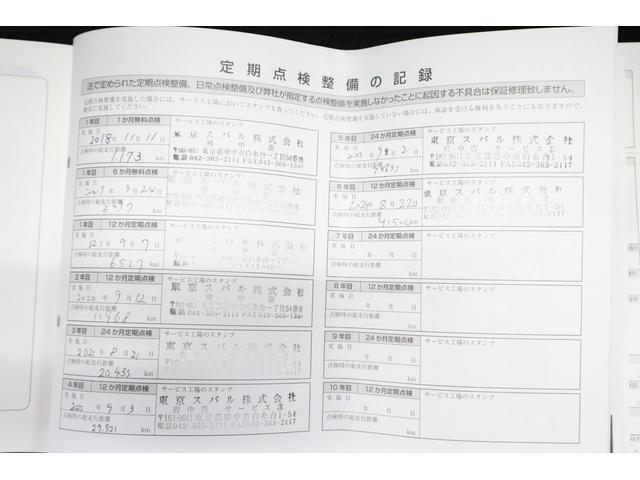 定期点検整備の記録
法で定められた定期点検整備、日常点検整備及び弊社が指定する点検整備を実施しなかったことに起因する不具合は保証修理致しません。
定期点検整備を実施した場合には、サービス工場においてスタンプを貰ってください。定期点検整備を実施していない場合には、保証を受ける権利を失うことにもなりますので、
確実に実施してください。
1年目 1か月無料点検
実施日
2018年11月11日
点検時の総走行距離
1173 km
東京スバル株式会社
府中店
電話042-365-2111 FAX042-365-2117
1年目 6か月無料点検
サービス工場のスタンプ
実施日
点検時の総走行距離
km
東京スバル株式会社
1年目 12か月定期点検
サービス工場のスタンプ
実施日
9月7日
点検時の総走行距離
6527 km
東京スバル株式会社
2年目 12か月定期点検
サービス工場のスタンプ
実施日
2020年9月12日
点検時の総走行距離
11968 km
東京スバル株式会社
府中店
3年目 24か月定期点検
サービス工場のスタンプ
実施日
2021年8月21日
点検時の総走行距離
20,433 km
東京スバル株式会社
4年目 12か月定期点検
サービス工場のスタンプ
実施日
9月3日
点検時の総走行距離
29,921 km
東京スバル株式会社
府中店 サービス課
〒183-0011東京都府中市白糸台1-54
電話042-365-2111 FAX042-365-2117
5年目 24か月定期点検
実施日
点検時の総走行距離
km
東京スバル株式会社
府中店 サービス課
〒183-0011東京都府中市白糸台1-54
電話042-365-2111 FAX042-365-2117
6年目 12か月定期点検
サービス工場のスタンプ
実施日
2024年8月22日
点検時の総走行距離
km
東京スバル株式会社
7年目 24か月定期点検
サービス工場のスタンプ
実施日
年 月 日
点検時の総走行距離
km
8年目 12か月定期点検
サービス工場のスタンプ
実施日
年 月 日
点検時の総走行距離
km
9年目 24か月定期点検
サービス工場のスタンプ
実施日
年 月 日
点検時の総走行距離
km
10年目 12か月定期点検
サービス工場のスタンプ
実施日
年 月 日
点検時の総走行距離
km